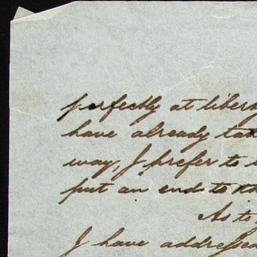 perfectly at liber
have already ta
way, I prefer to
put an end to th
As to
I have addressed